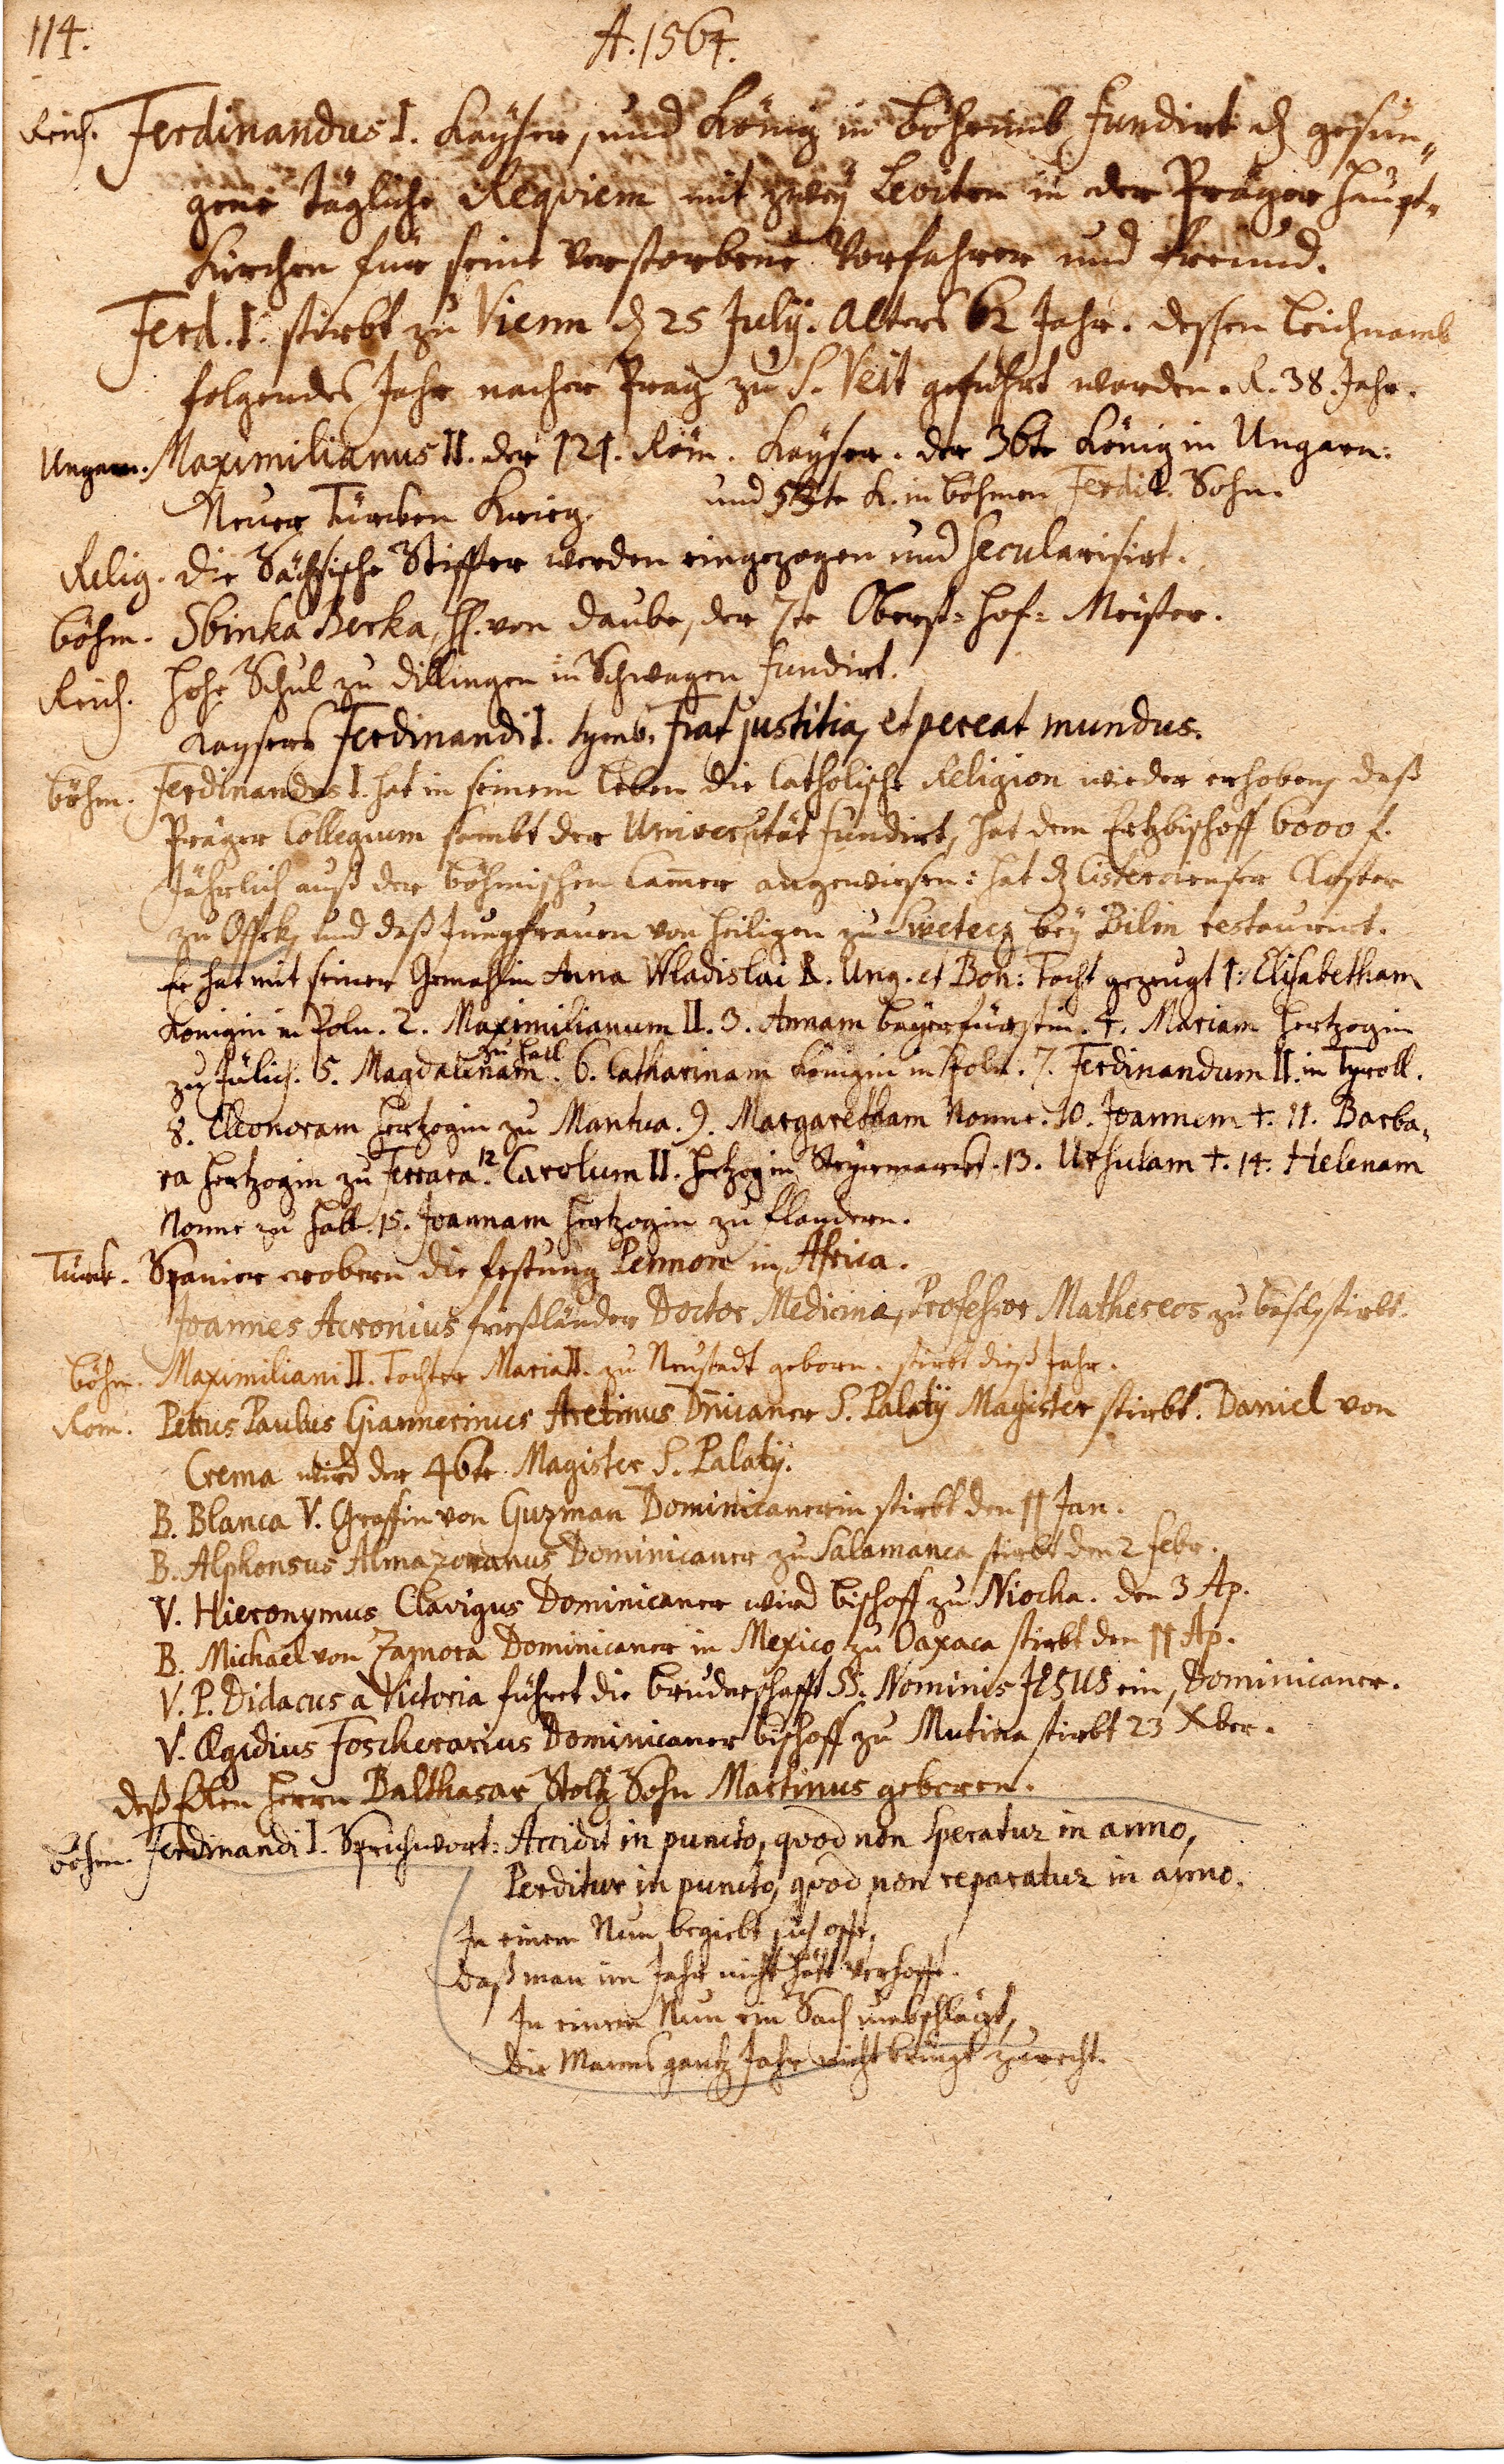 114.
A. 1564.
Reich. Ferdinandus I. Kaÿser, und König in Böheimb fundirt dz gesun„
gene tägliche Requiem mit zweÿ Leviten in der Prager Haupt„
Kirchen für seine verstorbene Vorfahrer und Freund.
Ferd. I. stirbt zu Vienn dz 25 Julÿ. Alters 62 Jahr. dessen Leichnamb
folgendes Jahr nacher Prag zu S. Veit geführt worden. R. 38. Jahr.
Ungarn. Maximilianus II. der 121. Röm. Kaÿser. der 36te König in Ungarn:
Neuer Türcken Krieg. und te K. in Böhmen Ferdi. Sohn.
Relig. Die Sächsische Stiffter werden eingezogen und Secularisirt.
Böhm. Sbinka Berka, H. von Daube, der 7te Oberst= Hof= Meister.
Reich. Hohe Schul zu Dillingen in Schwagen fundirt.
Kaysers Ferdinandi I. Symb. Fiat justitia, et pereat mundus.
Böhm. Ferdinandus I. hat in seinem Leben die Catholische Religion wieder erhoben, daß
Präger Collegium sambt der Universität fundirt, hat dem Ertzbischoff 6000 f.
Jährlich auß der Böhmischen Camer angewiesen: hat dz Cistercienser Kloster
zu Ossek, und daß Jungfrauen von Heiligen zu Swetecz beÿ Bilin restaurirt.
Er hat mit seiner Gemahlin Anna Wladislai R. Ung. et Boh: Tocht gezeugt 1: Elisabetham
Königin in Poln. 2. Maximilianum II. 3. Annam Beÿerfürstin. 4. Mariam Hertzogin
zu Jülich. 5. Magdalenam zu Hall. 6. Catharinam Königin in Poln. 7. Ferdinandum II. in Tyroll.
8. Eleonoram Hertzogin zu Mantua. 9. Margaretham Nonne. 10. Joannem †. 11. Barba„
ra Hertzogin zu Ferrara. 12 Carolum II. Hertzog in Steyrmarckt. 13. Ursulam †. 14. Helenam
Nonne zu Hall. 15. Joannam Hertzogin zu Flandern.
Türck. Spanier erobern die Festung Pennon in Africa.
Joannes Acronius Frießländer Doctor Medicinæ, Professor Matheseos zu Basel stirbt.
Böhm. Maximiliani II. Tochter Maria II. zu Neustadt geborn. stirbt dieß Jahr.
Rom. Petrus Paulus Giannerinus Aretinus Dnicaner S. Palatÿ Magister stirbt. Daniel von
Crema wird der 46te Magister S. Palatÿ.
B. Blanca V. Graffin von Guzman Dominicanerin stirbt den 11 Jan.
B. Alphonsus Almazoranus Dominicaner zu Salamanca stirbt den 2 Febr.
V. Hieronymus Clavigus Dominicaner wird Bischoff zu Niocha. den 3 Ap.
B. Michaël von Zamora Dominicaner in Mexico zu Oaxaca stirbt den 11 Ap.
V. P. Didacus a Victoria führet die Bruderschafft SS. Nominis JESUS ein, Dominicaner.
V. Ægidius Foscherarius Dominicaner Bischoff zu Mutina stirbt 23 Xber.
Deß Edlen Herrn Balthasar Stoltz Sohn Martinus geboren.
Böhm. Ferdinandi I. Sprichwort: Accidit in puncto, quod non speratur in anno,
Perditur in puncto, quod non reparatur in anno.
In einem Nun begiebt sich offt,
Daß man im Jahr nicht hätt verhofft.
In einem Nun ein Sach umbschlägt,
Die Manns gantz Jahr nicht bringt zurecht.